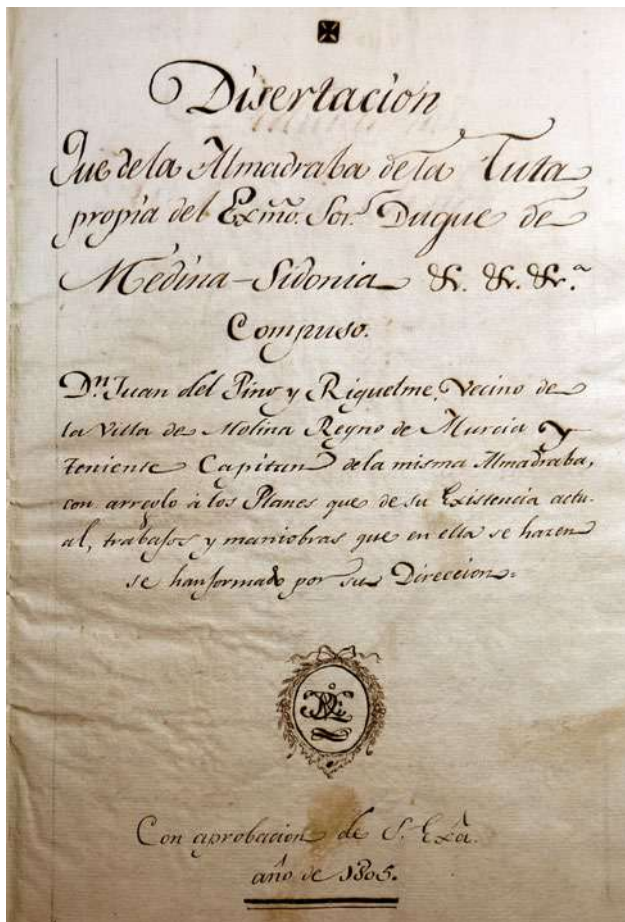 Disertacion
Que de la Almadraba de la Tuta
propia del Exmõ. Sor. Duque de
Medina-Sidonia &. &. &.ª
Compuso.
Dn. Juan del Pino y Riquelme, Vecino de
la Villa de Molina Reyno de Murcia y
Teniente Capitan de la misma Almadraba,
con arreglo à los Planes que de su Existencia actu-
al, trabajos y maniobras que en ella se hacen
se han formado por su Direccion.
Con aprobacion de S. Exã.
año de 1805.